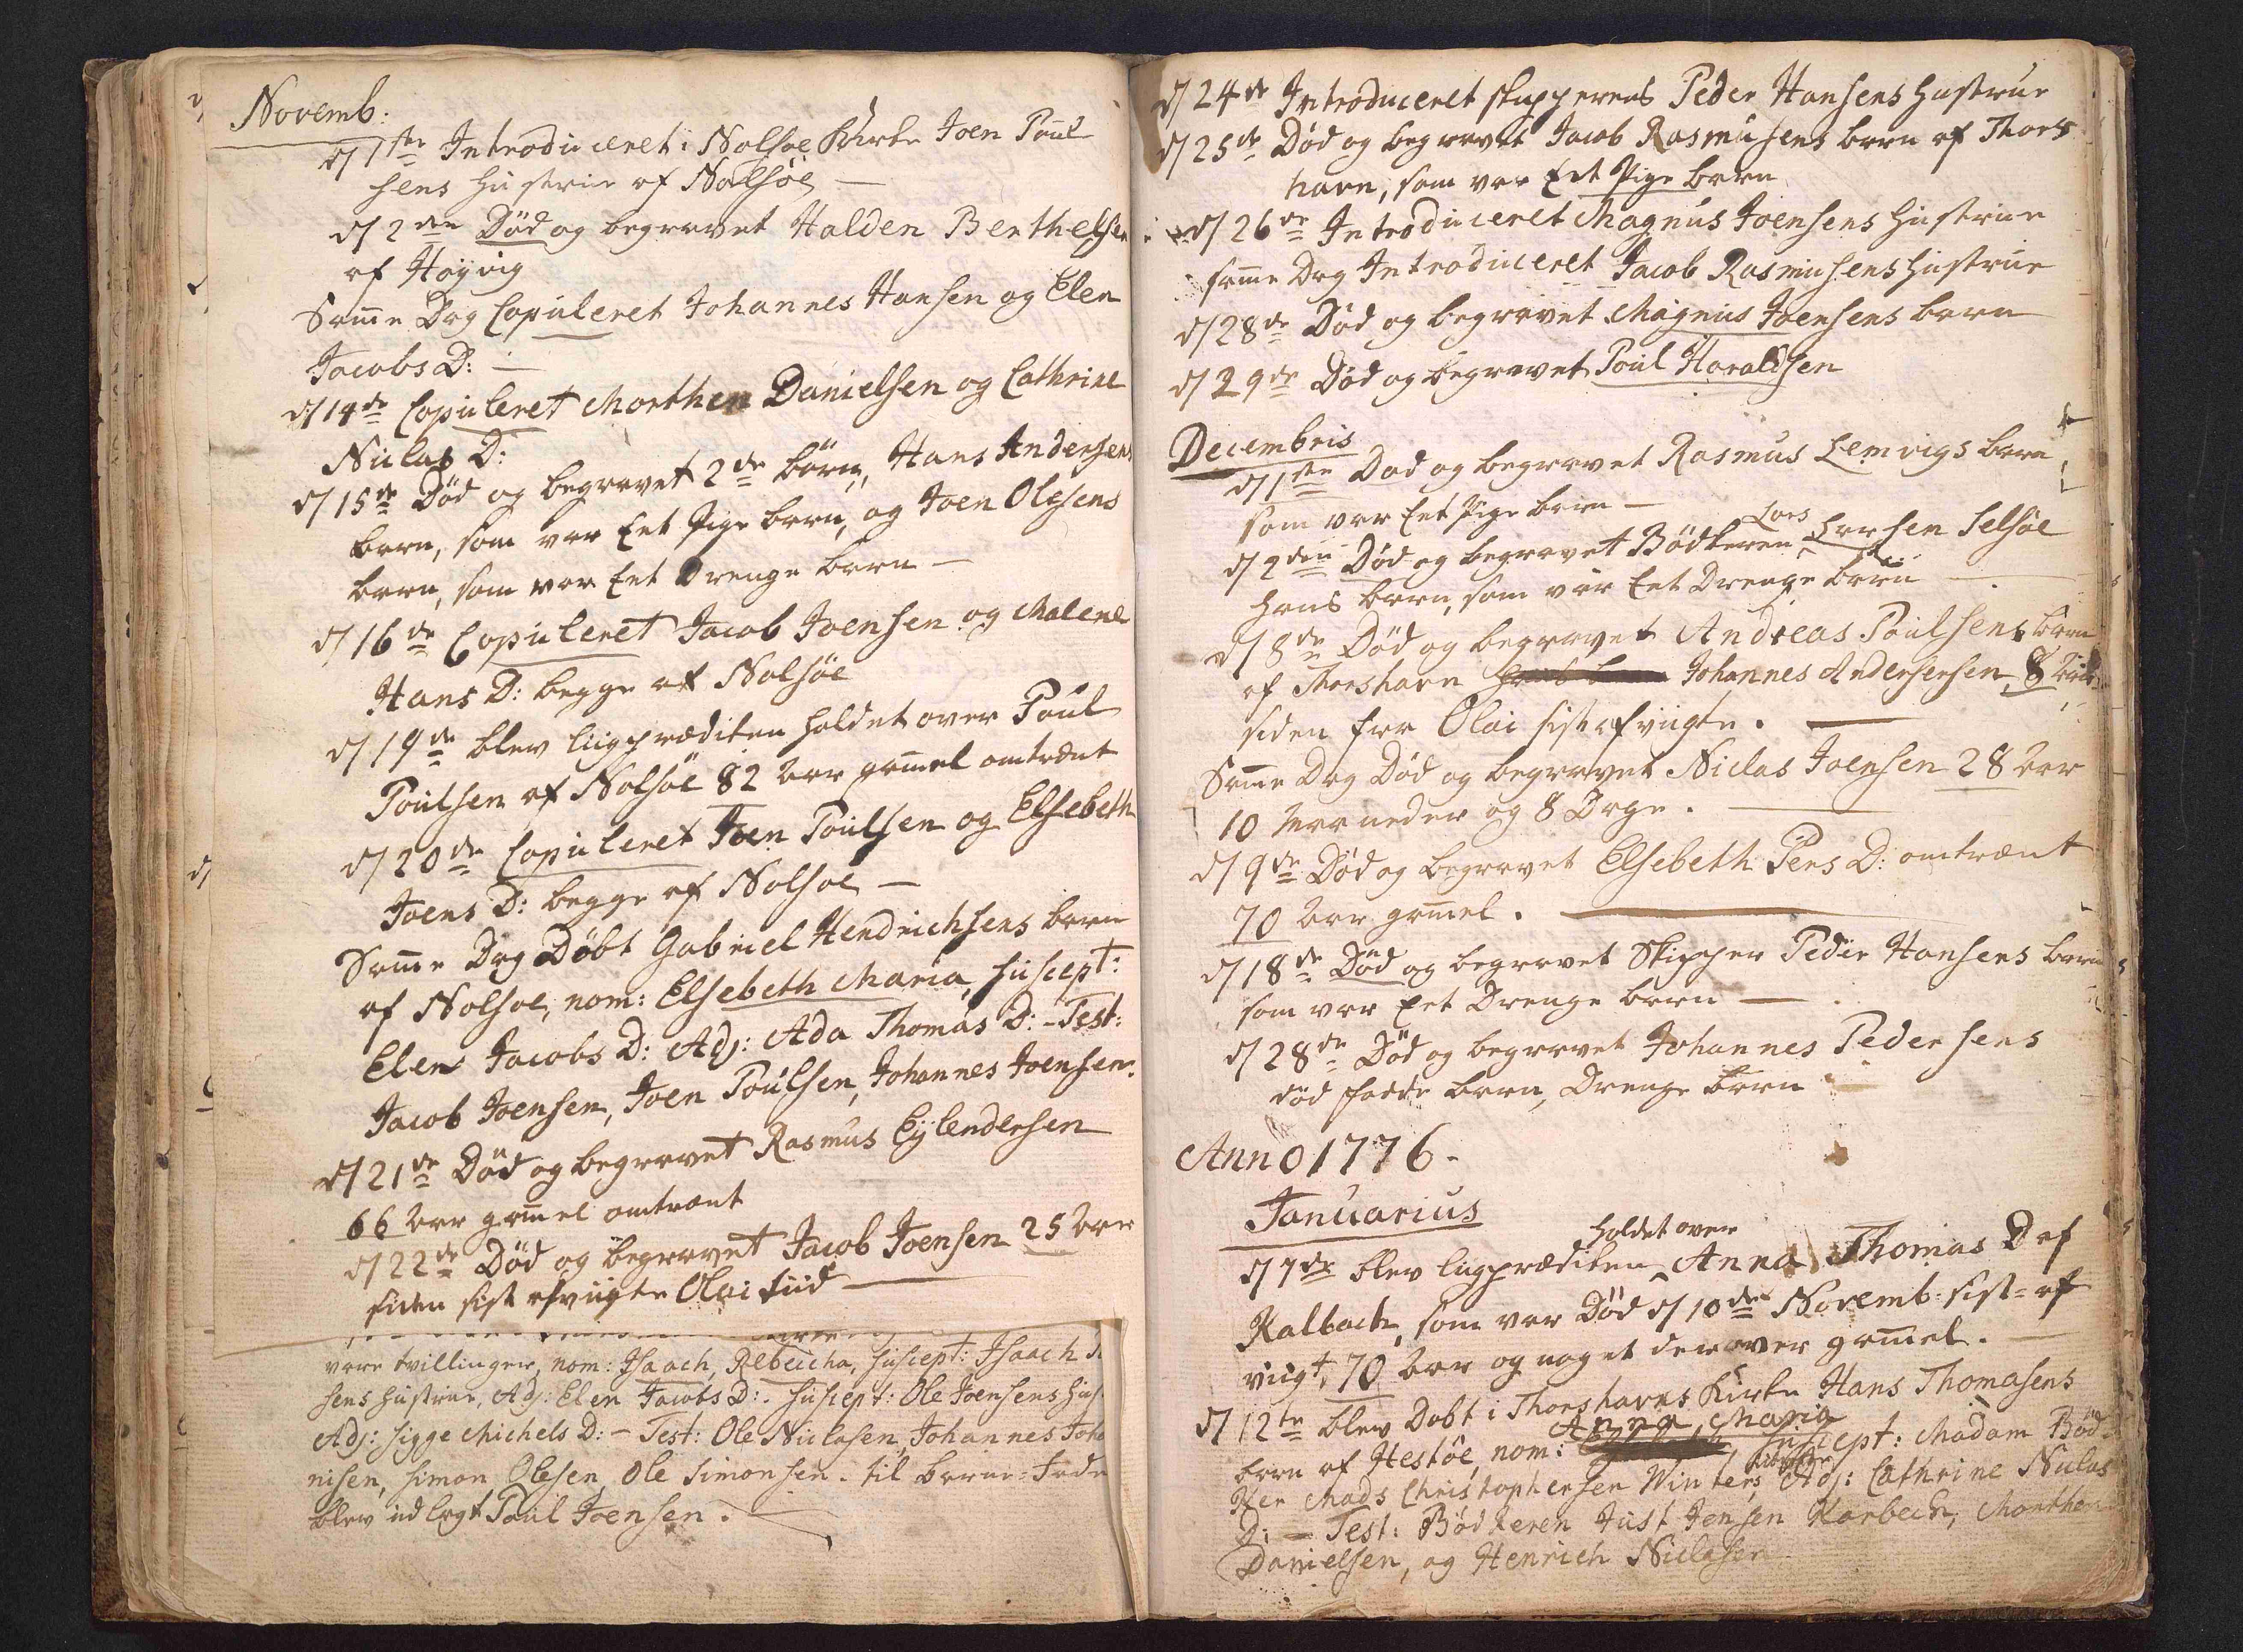 Novemb:
d/ 1ste Introduceret i Nolsøe Kirke Joen Poul
sens Hustrue af Nolsøe —
d/ 2den Død og begravet Halden Berthelsen
af Høÿvig
Samme Dag Copuleret Johannes Hansen og Elen
Jacobs D: —
d/ 14de Copuleret Morthen Danielsen og Cathrine
Niclas D:
d/ 15de Død og begravet 2de børn, Hans Andersens
barn, som var Eet Pige barn, og Joen Olesens
barn, som var Eet Drenge barn —
d/ 16de Copuleret Jacob Joensen og Malene
Hans D: begge af Nolsøe
d/ 19de blev liigprædiken holdet over Poul
Poulsen af Nolsøe 82 Aar gammel omtrent
d/ 20de Copuleret Joen Poulsen og Elsebeth
Joens D: begge af Nolsøe —
Samme Dag Døbt Gabriel Hendrichsens barn
af Nolsøe, nom: Elsebeth Maria, suscept:
Elen Jacobs D: Adj: Ada Thomas D: - Test:
Jacob Joensen, Joen Poulsen, Johannes Joensen.
d/ 21de Død og begravet Rasmus Eÿlendersen
66 Aar gammel omtrent
d/ 22de Død og begravet Jacob Joensen 25 Aar
siden sist afvigte Olai tiid —
vare tvillinger, nom: Isaach, Rebeccha, suscept: Isaach
sens hustrue, Adj: Elen Jacobs D:. suscept: Ole Joensens hus
Adj: Sigge Michels D: - Test: Ole Niclasen, Johannes Joha
nisen, Simon Olesen, Ole Simonsen. til barne-Fader
blev udlagt Poul Joensen.
d/ 24de Introduceret skipperens Peder Hansens Hustrue
d/ 25de Død og begravet Jacob Rasmusens barn af Thors
havn, som var Eet Pige barn
d/ 26de Introduceret Magnus Joensens Hustrue
samme Dag Introduceret Jacob Rasmusens Hustrue
d/ 28de Død og begravet Magnus Joensens barn
d/ 29de Død og begravet Poul Haraldsen
Decembris
d/ 1ste Død og begravet Rasmus Lemvigs barn
som var Eet Pige barn —
d/ 2den Død og begravet Bødkeren Lars Larsen Selsøe
hans barn, som var Eet Drenge barn —
d/ 8de Død og begravet Andreas Poulsens barn
af Thorshavn Johannes Andersensen, 8
siden for Olai sist afvigte. —
Samme Dag Død og begravet Niclas Joensen 28 Aar
10 Maaneder og 8 Dage. —
d/ 9de Død og begravet Elsebeth Pers D: omtrent
70 Aar gammel. —
d/ 18de Død og begravet Skipper Peder Hansens barn
som var Eet Drenge barn —
d/ 28de Død og begravet Johannes Pedersens
død fødde barn, Drenge barn
Anno 1776.
Januarius
d/ 7de blev liigprædiken holdet over Anna Thomas D af
Kalbach, som var Død d/ 10de Novemb: sist- af
vigt, 70 Aar og noget derover gammel. —
d/ 12te blev Døbt i Thorshavns Kirke Hans Thomasens
barn af Hestøe, nom: Anna Maria suscept: Madam Bød
Her Mads Christophersen Winters Adj: Cathrine Niclas
D: — Test: Bødkeren Just Jensen Karbech, Morthen
Danielsen, og Henrich Niclasen